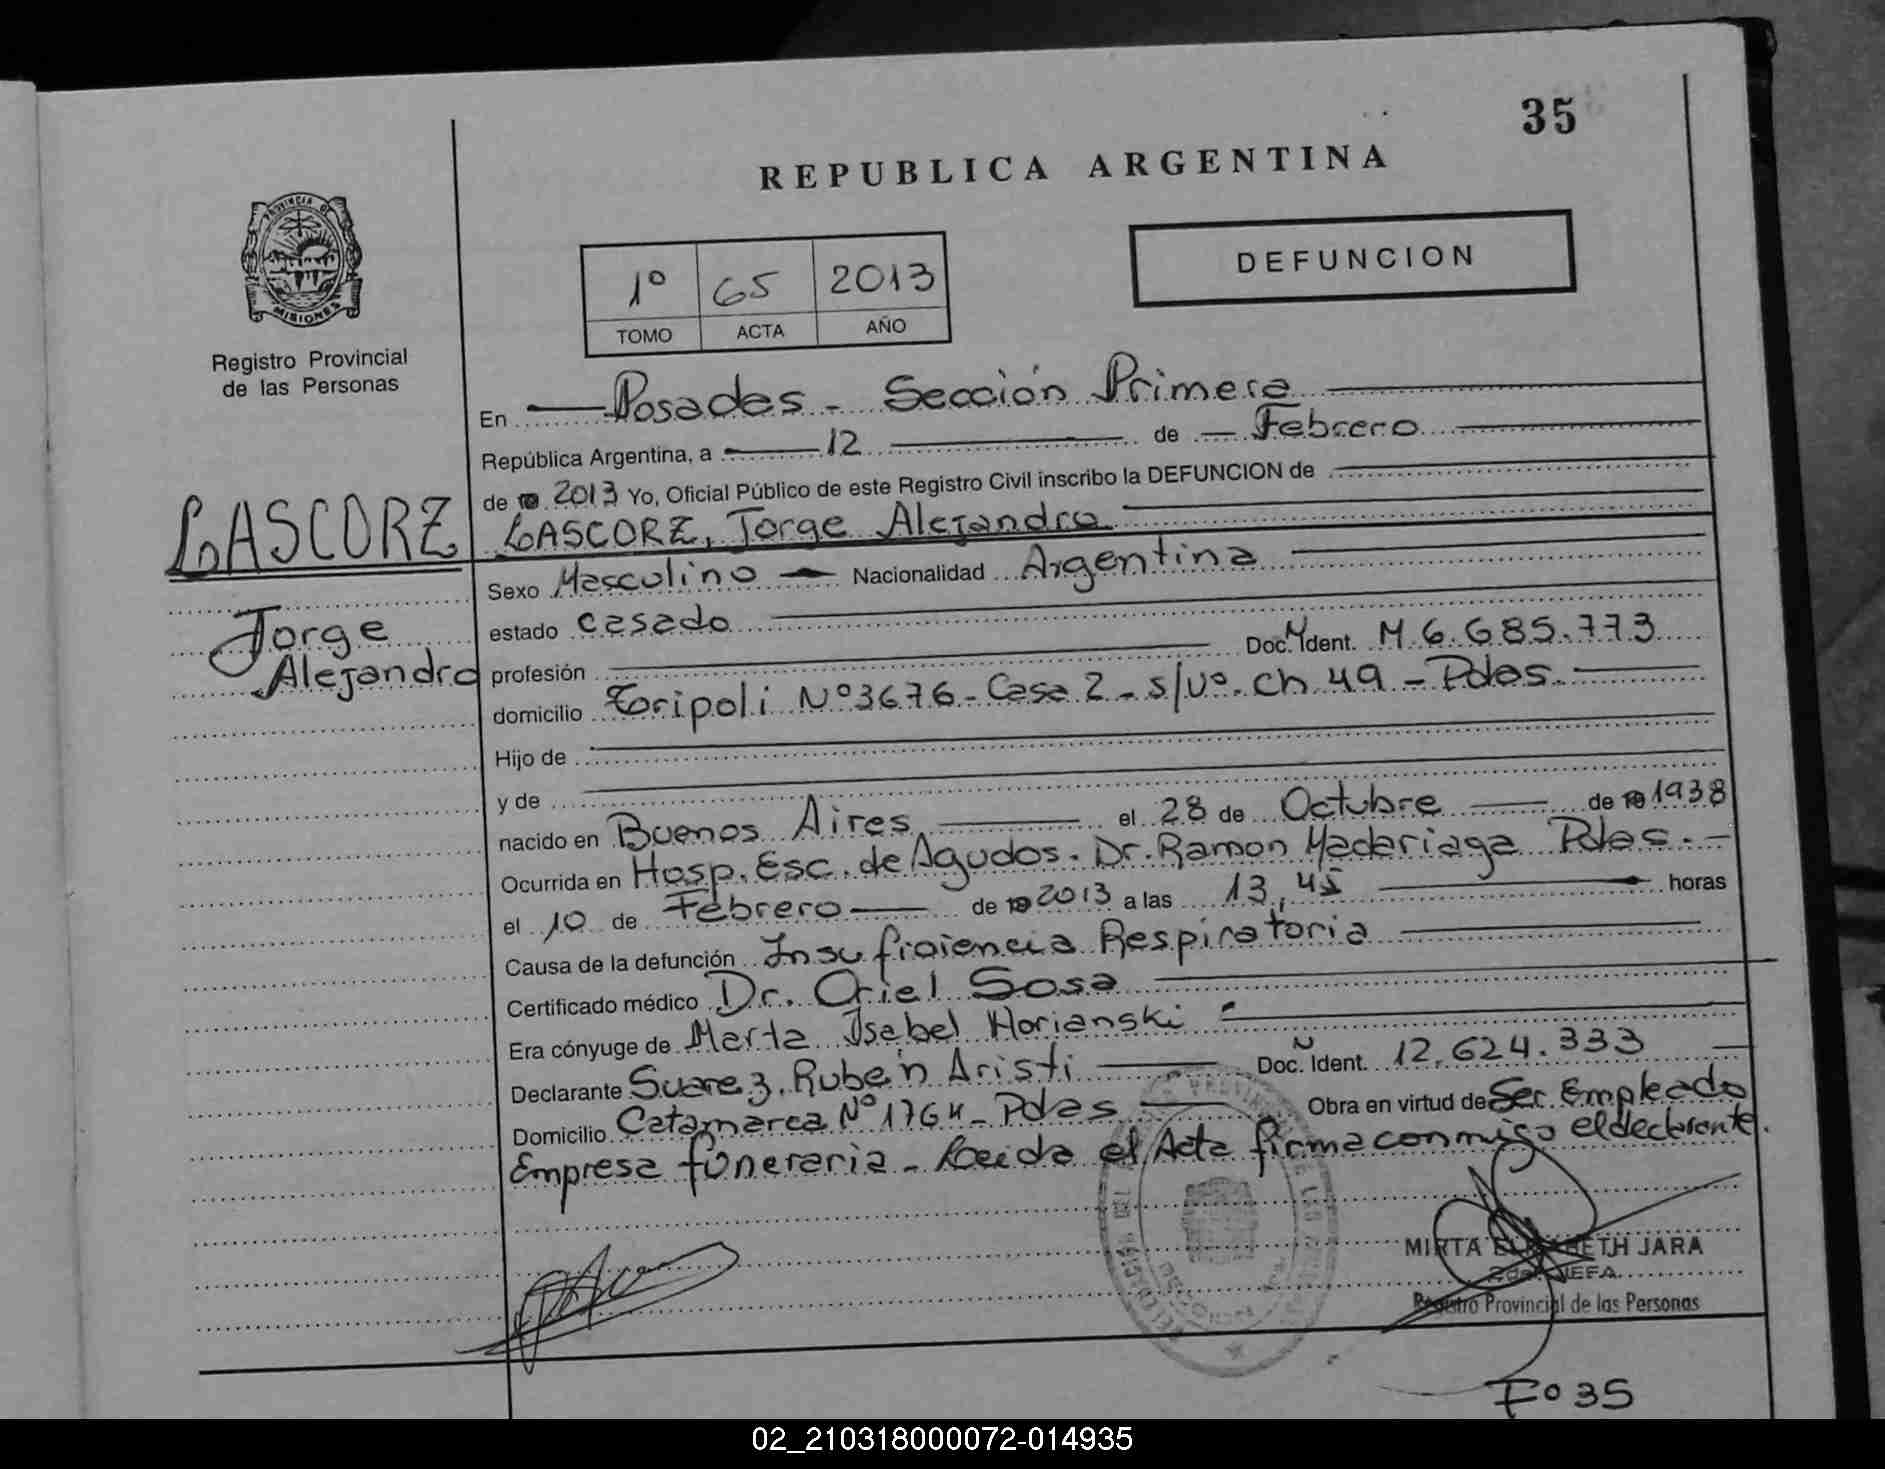 35
REPUBLICA ARGENTINA
PROVINCIA DE
MISIONES
Registro Provincial
de las Personas
DEFUNCION
1º 65 2013
TOMO ACTA AÑO
En Posadas - Sección Primera
República Argentina, a 12 de Febrero
de 2013 Yo, Oficial Público de este Registro Civil inscribo la DEFUNCION de
LASCORZ
Jorge
Alejandro
LASCORZ, Jorge Alejandro
Sexo Masculino Nacionalidad Argentina
estado casado
profesión Doc. N Ident. M 6.685.773
domicilio Tripoli Nº 3676 - Casa 2 - s/Nº. Ch 49 - Pdas.
Hijo de
y de
nacido en Buenos Aires el 28 de Octubre de 1938
Ocurrida en Hosp. Esc. de Agudos. Dr. Ramon Madariaga Pdas.
el 10 de Febrero de 2013 a las 13,45 horas
Causa de la defunción Insuficiencia Respiratoria
Certificado médico Dr. Oriel Sosa
Era cónyuge de Marta Isabel Horianski
Declarante Suarez, Rubén Aristi Doc. N Ident. 12.624.333
Domicilio Catamarca Nº 1764 - Pdas Obra en virtud de Ser Empleado
Empresa fúneraria - Leida el Acta firma conmigo el declarante.
MIRTA ELIZABETH JARA
2da. JEFA
Registro Provincial de las Personas
Fº 35
02_210318000072-014935